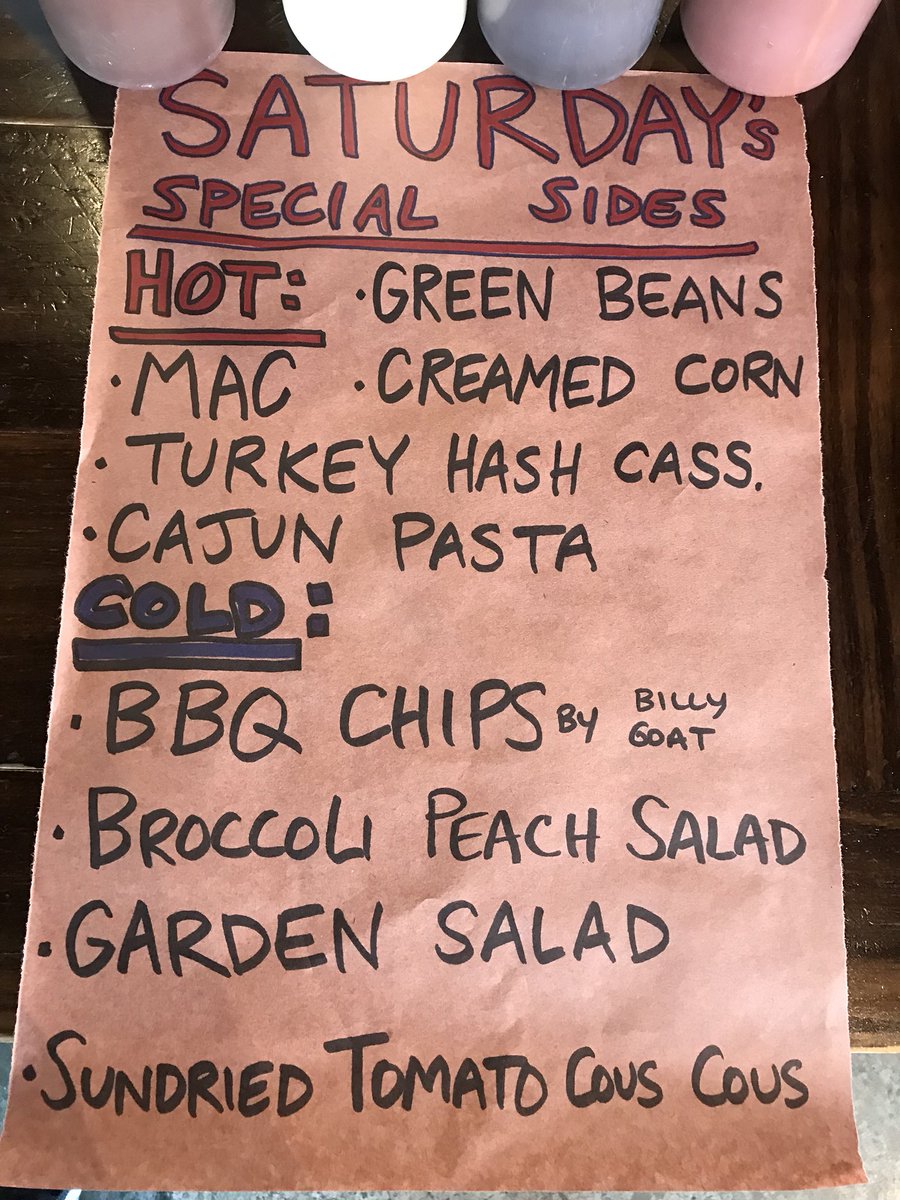 SATURDAY's
SPECIAL SIDES
HOT: • GREEN BEANS
• MAC • CREAMED CORN
• TURKEY HASH CASS.
• CAJUN PASTA
COLD:
• BBQ CHIPS By BILLY GOAT
• BROCCOLI PEACH SALAD
• GARDEN SALAD
• SUNDRIED TOMATO COUS COUS